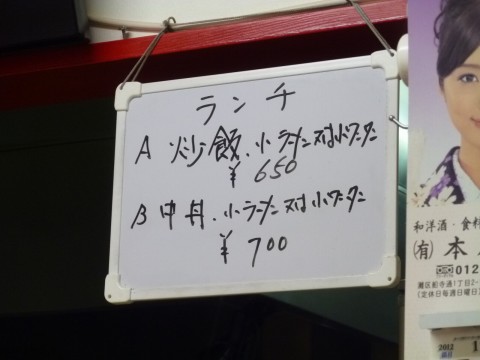 ランチ
A 炒飯、小ラーメン又は小ワンタン
¥650
B 中丼、小ラーメン又は小ワンタン
¥700
和洋酒・食料
(有)本
012
灘区船寺通1丁目2-
(定休日毎週日曜日)
2012